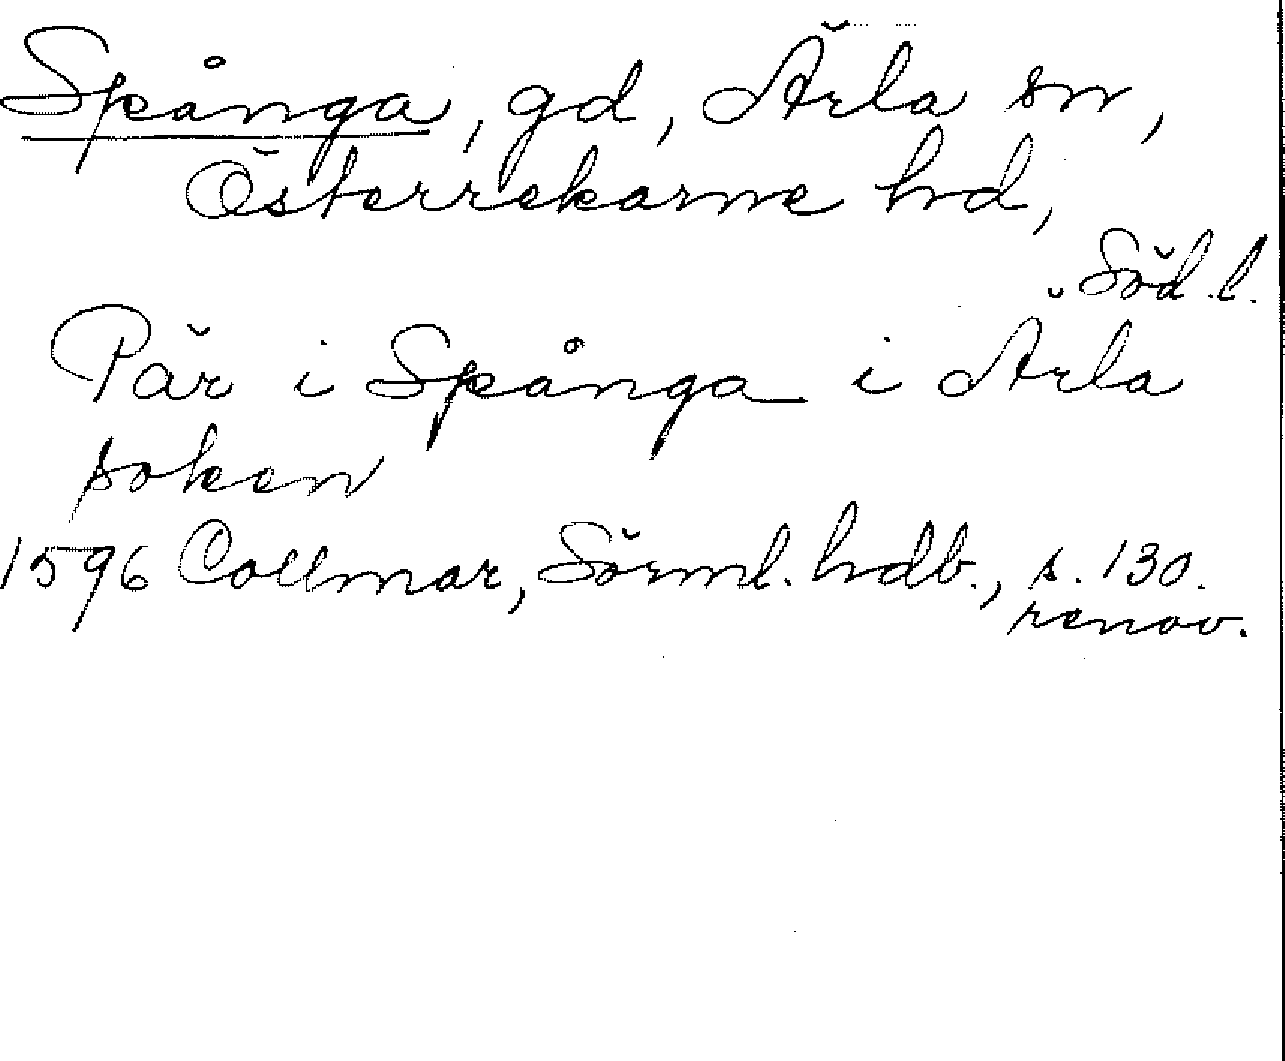 Spånga, gd, Ärla sn,
Österrekarne hd,
Söd.l.
Pär i Spånga i Ärla
soken
1596 Collmar, Sörml. hdb., s. 130.
renov.